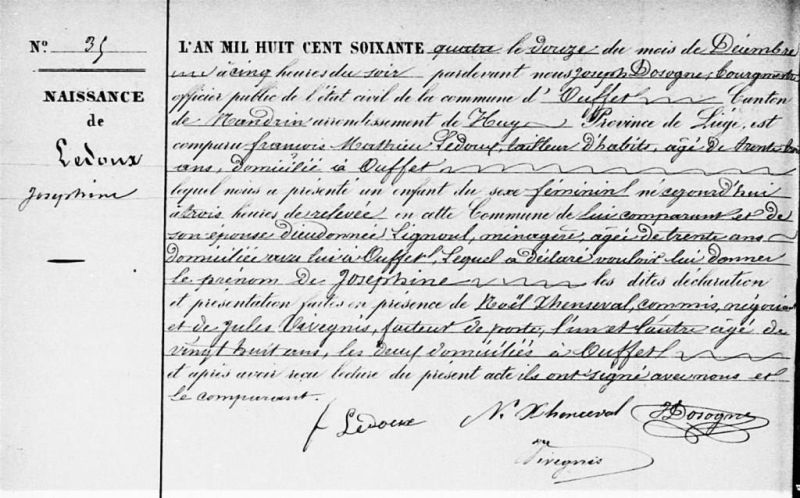 N.º 35
NAISSANCE
de
Ledoux
Josephine
L'AN MIL HUIT CENT SOIXANTE quatre le douze du mois de Décembre
à cinq heures du soir pardevant nous Joseph Dosogne, bourgmestre
officier public de l'état civil de la commune d'Ouffet Canton
de Nandrin arrondissement de Huy Province de Liége, est
comparu françois Mathieu Ledoux, tailleur d'habits, âgé de trente
ans, domicilié à Ouffet
lequel nous a présenté un enfant du sexe féminin né cejourd'hui
à trois heures de relevée en cette Commune de lui comparant et de
son épouse Dieudonnée Lignoul, ménagère, âgée de trente ans
domiciliée avec lui à Ouffet, Lequel a déclaré vouloir lui donner
le prénom de Josephine les dites déclaration
et présentation faites en présence de Noël Xhenseval, commis, négociant
et de Jules Vivegnis, facteur de poste, l'un et l'autre âgé de
vingt huit ans, les deux domiciliés à Ouffet
et après avoir reçu lecture du présent acte ils ont signé avec nous et
le comparant.
f Ledoux N. Xhenceval JDosogne
Vivegnis